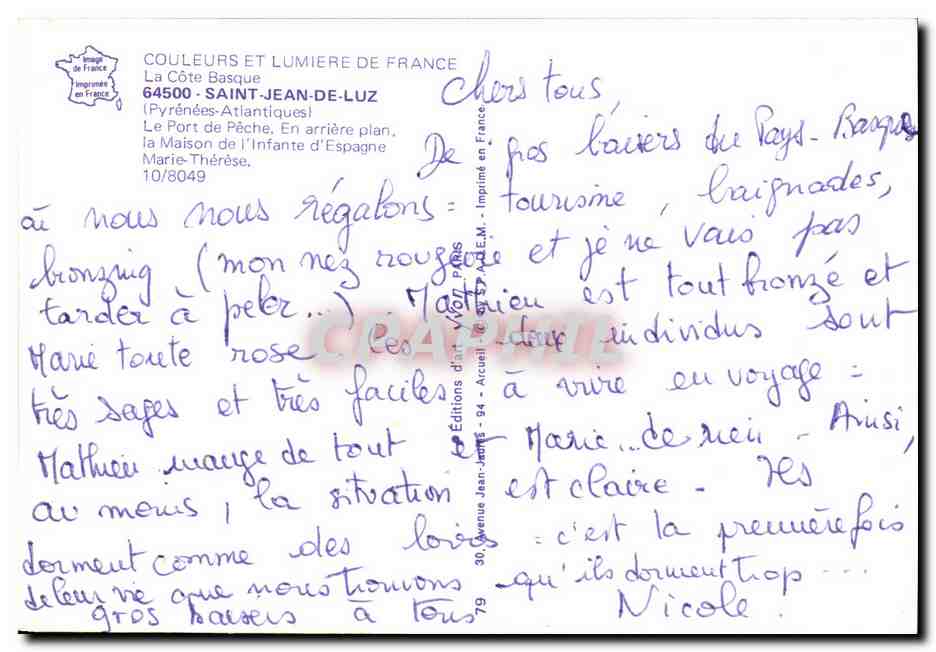 Image
de France
Imprimée
en France
COULEURS ET LUMIERE DE FRANCE
La Côte Basque
64500 - SAINT-JEAN-DE-LUZ
(Pyrénées-Atlantiques)
Le Port de Pêche. En arrière plan,
la Maison de l'Infante d'Espagne
Marie-Thérèse.
10/8049
Chers tous,
De gros baisers du Pays-Basque
où nous nous régalons = tourisme, baignades,
bronzing (mon nez rougeoie et je ne vais pas
tarder à peler...) Mathieu est tout bronzé et
Marie toute rose. Ces deux individus sont
très sages et très faciles à vivre en voyage =
Mathieu mange de tout et Marie... de rien - Ainsi,
au moins, la situation est claire - Ils
dorment comme des loirs = c'est la première fois
de leur vie que nous trouvons qu'ils dorment trop ...
gros baisers à tous Nicole.
79 30, Avenue Jean-Jaurès - 94 - Arcueil - S.P.A.D.E.M. - Imprimé en France
Éditions d'art YVON PARIS
CPAPHIL